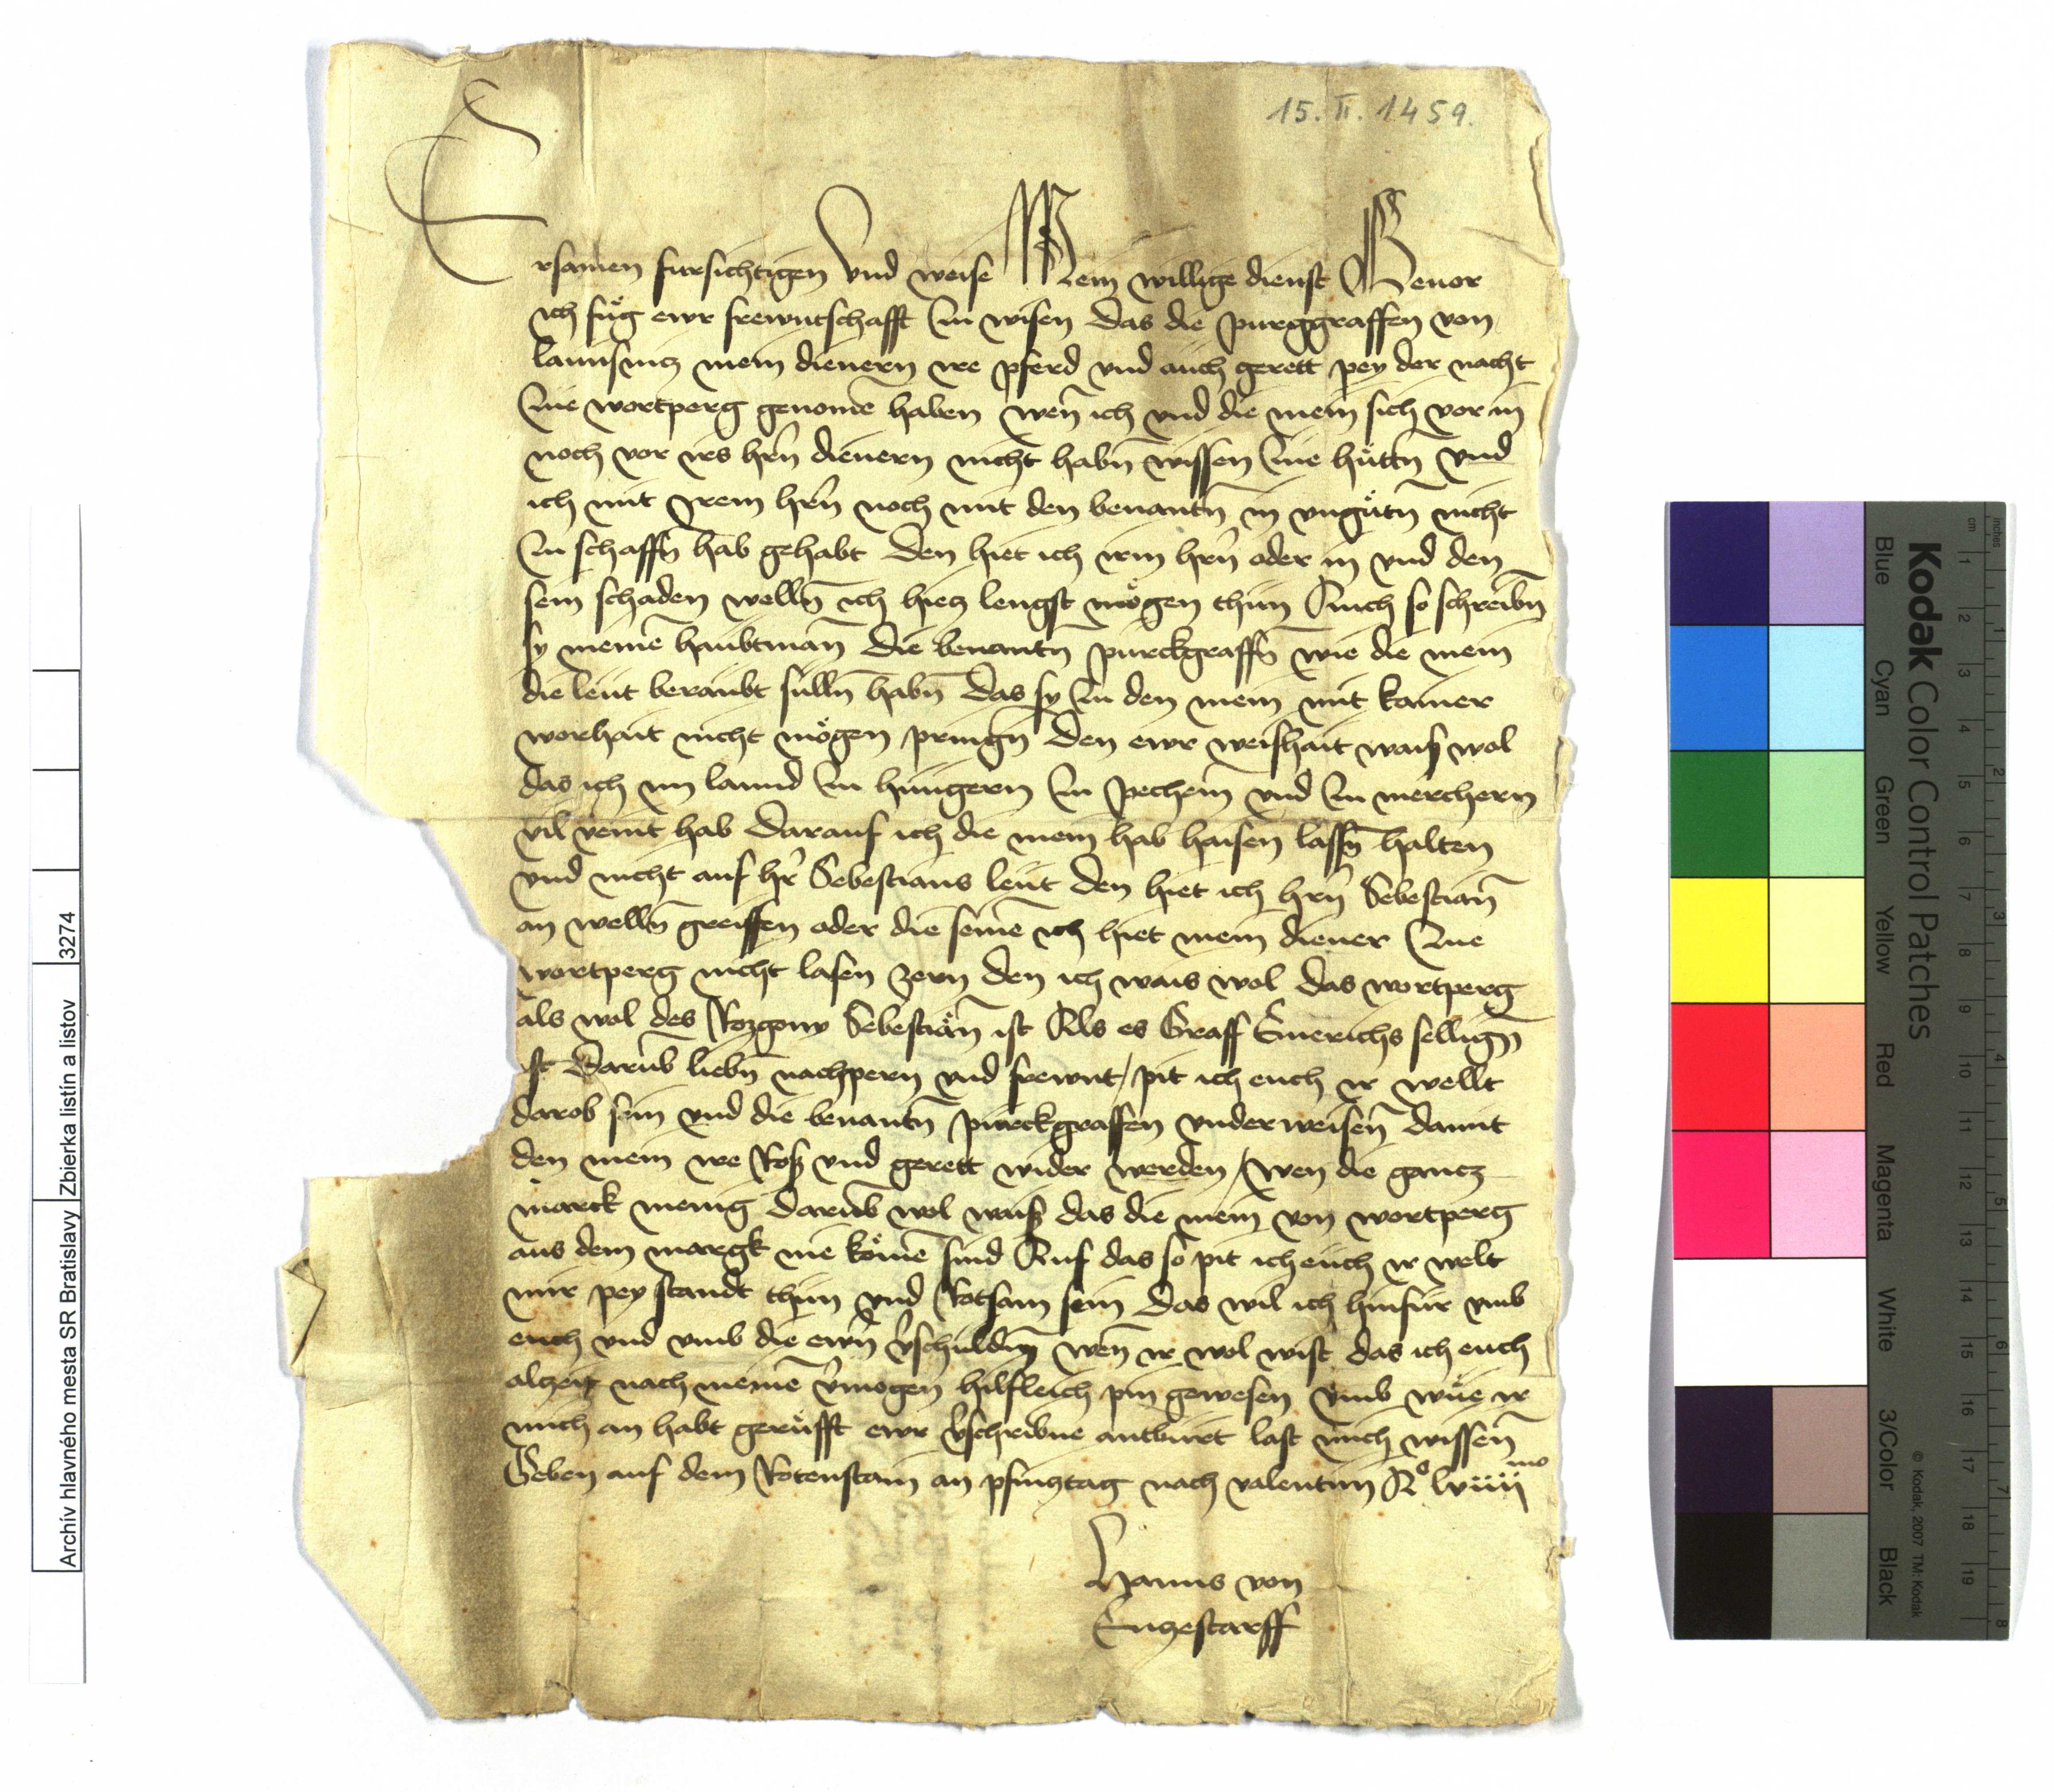 15. II. 1459.
Ersamen fursichtigen Vnd weise Mein willige dienst Beuor
ich fug ewr frewntschafft Czu wisen das die purggraffen von
lannsnicz mein dienern ire pferd vnd auch gerett pey der nacht
Czue wortperg genome haben wen ich vnd die mein sich vor in
noch vor irs hrn dienern nicht habn wissen Czue hüttn vnd
ich mit irem hrn noch mit den benantn in vngütn nicht
Czu schaffn hab gehabt den hiet ich irm hrn oder in vnd den
sein schaden welln ich hiecz lengst mögen thun Auch so schreibn
sy meine haubtman die benantn purckgraffn wie die mein
die leut beraubt sulln habn das sy Czu den mein mit kainer
worhait nicht mögen pringn den ewr weishait waiß wol
das ich im lannd Czu hungern Czu pechem vnd Czu merchern
vil veint hab darauf ich die mein hab haisen lassn halten
vnd nicht auf hr Sebestians leut den hiet ich hrn Sebestian
an welln greiffen oder die seine ich hiet mein diener Czue
wortperg nicht lasen zern den ich wais wol das wortperg
als wol des Rozgony Sebestian ist Als es Graff Emerichs sellign
ist Darub liebn nachpern vnd frewnt / pit ich euch ir wellt
darob sein vnd die benantn purckgraffen vnderweisen damit
den mein ire Roß vnd gerett wider werden / wen die gancz
marck menig darub wol waiß das die mein von wortperg
aus dem margk nie köme sind Auf das so pit ich euch ir welt
mir pey standt thun vnd Rotsam sein das wil ich hinfur vmb
euch vnd vmb die ewrn vschuldin wen ir wol wist das ich euch
alczeit nach meine vmogen hilfleich pin gewesen vmb wue ir
mich an habt gerufft ewr vschribne antburt last mich wissen
Geben auf dem Rotenstain an pfincztag nach valentini Ao lviiii mo
Hanns von
Enczestarff
Archív hlavného mesta SR Bratislavy
Zbierka listín a listov
3274
Kodak Color Control Patches
Blue
Cyan
Green
Yellow
Red
Magenta
White
3/Color
Black
© Kodak, 2007 TM: Kodak
cm
1
2
3
4
5
6
7
8
9
10
11
12
13
14
15
16
17
18
19
inches
1
2
3
4
5
6
7
8